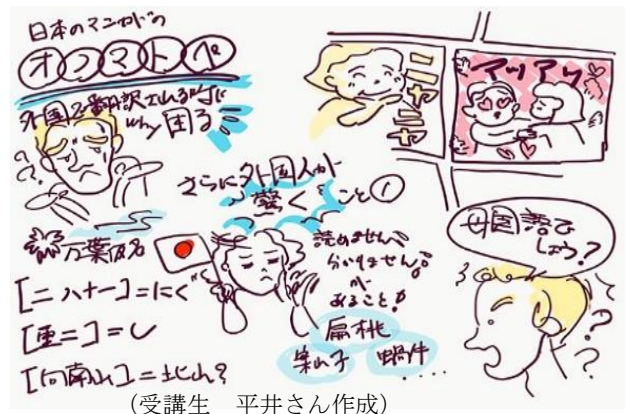 日本のマンガの
オノマトペ
外国で翻訳される時に
why 困る
ニヤニヤ
アツアツ
さらに外国人が
驚く
こと①
万葉仮名
[二八十一]=にく
[重二]=し
[向南山]=北山?
読めません
分かりません。
が
あること!
扁桃
案山子
蝸牛
....
母国語で
しょう?
(受講生 平井さん作成)